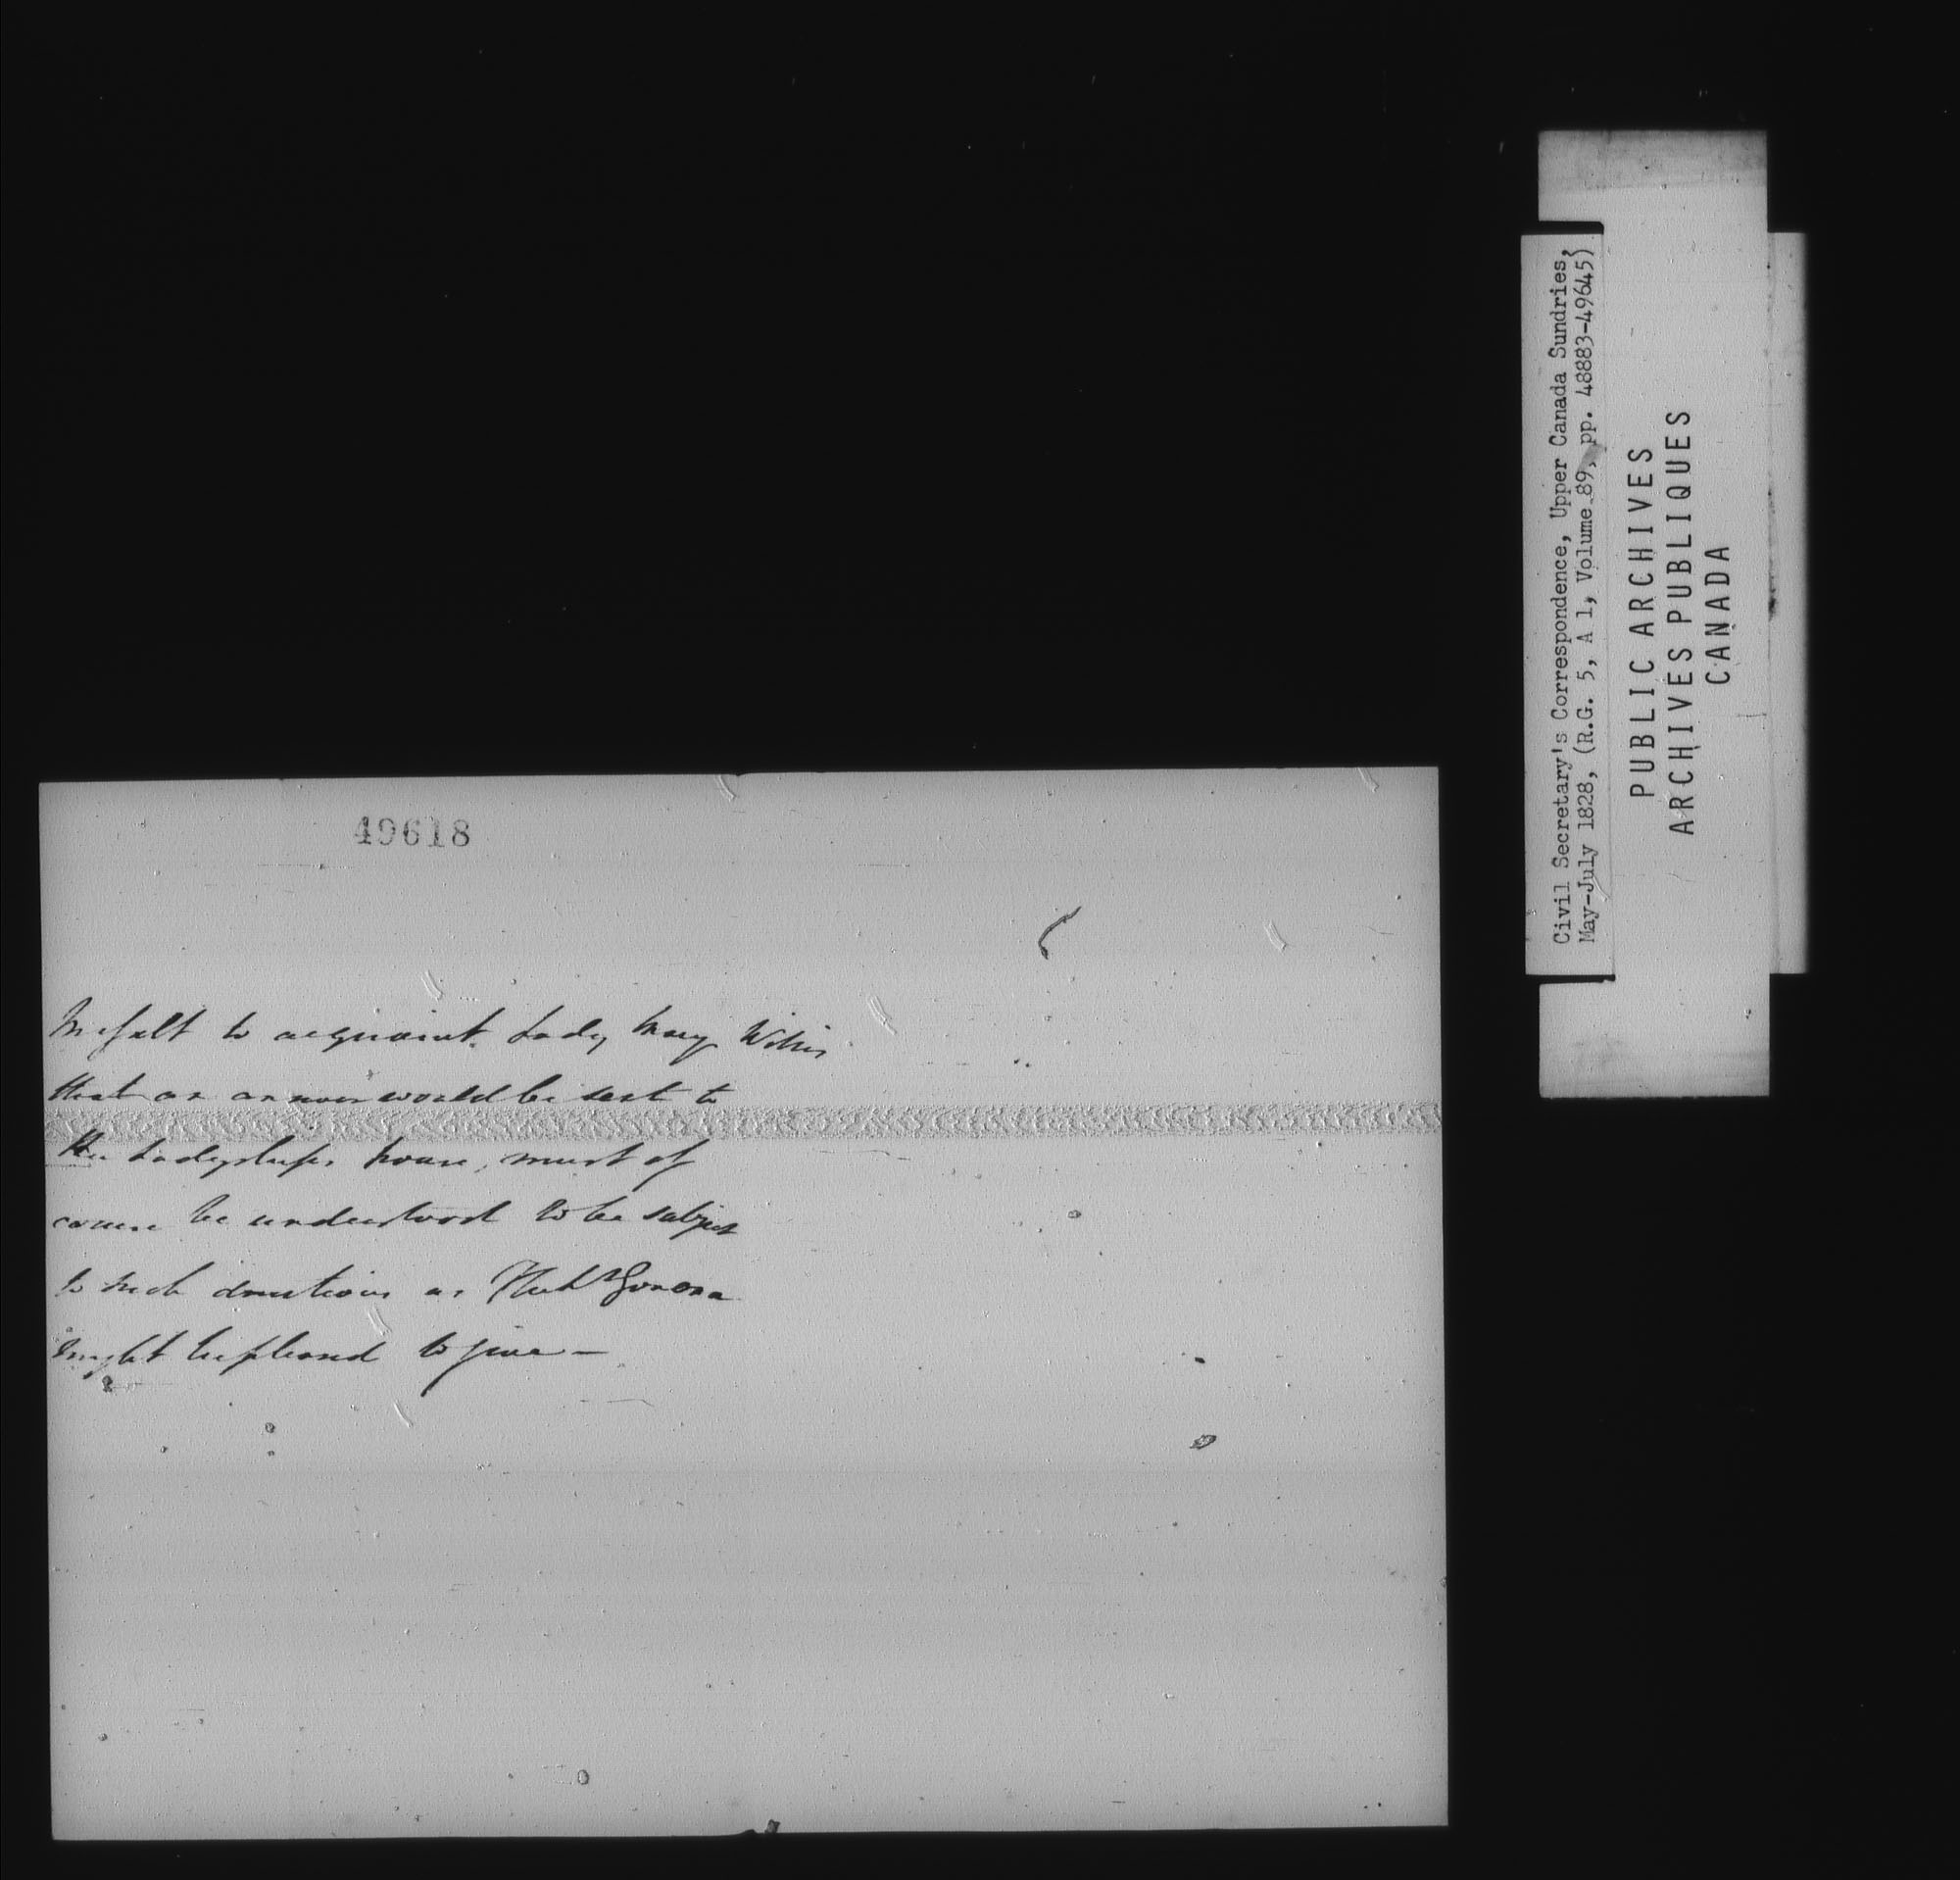 49618
to acquaint Lady Mary Willis
that an answer would be sent to
Her Ladyships house, must of
course be understood to be subject
to such directions as The Lt Governor
might be pleased to give —
Civil Secretary's Correspondence, Upper Canada Sundries,
May-July 1828, (R.G. 5, A 1, Volume 89, pp. 48883-49645)
PUBLIC ARCHIVES
ARCHIVES PUBLIQUES
CANADA